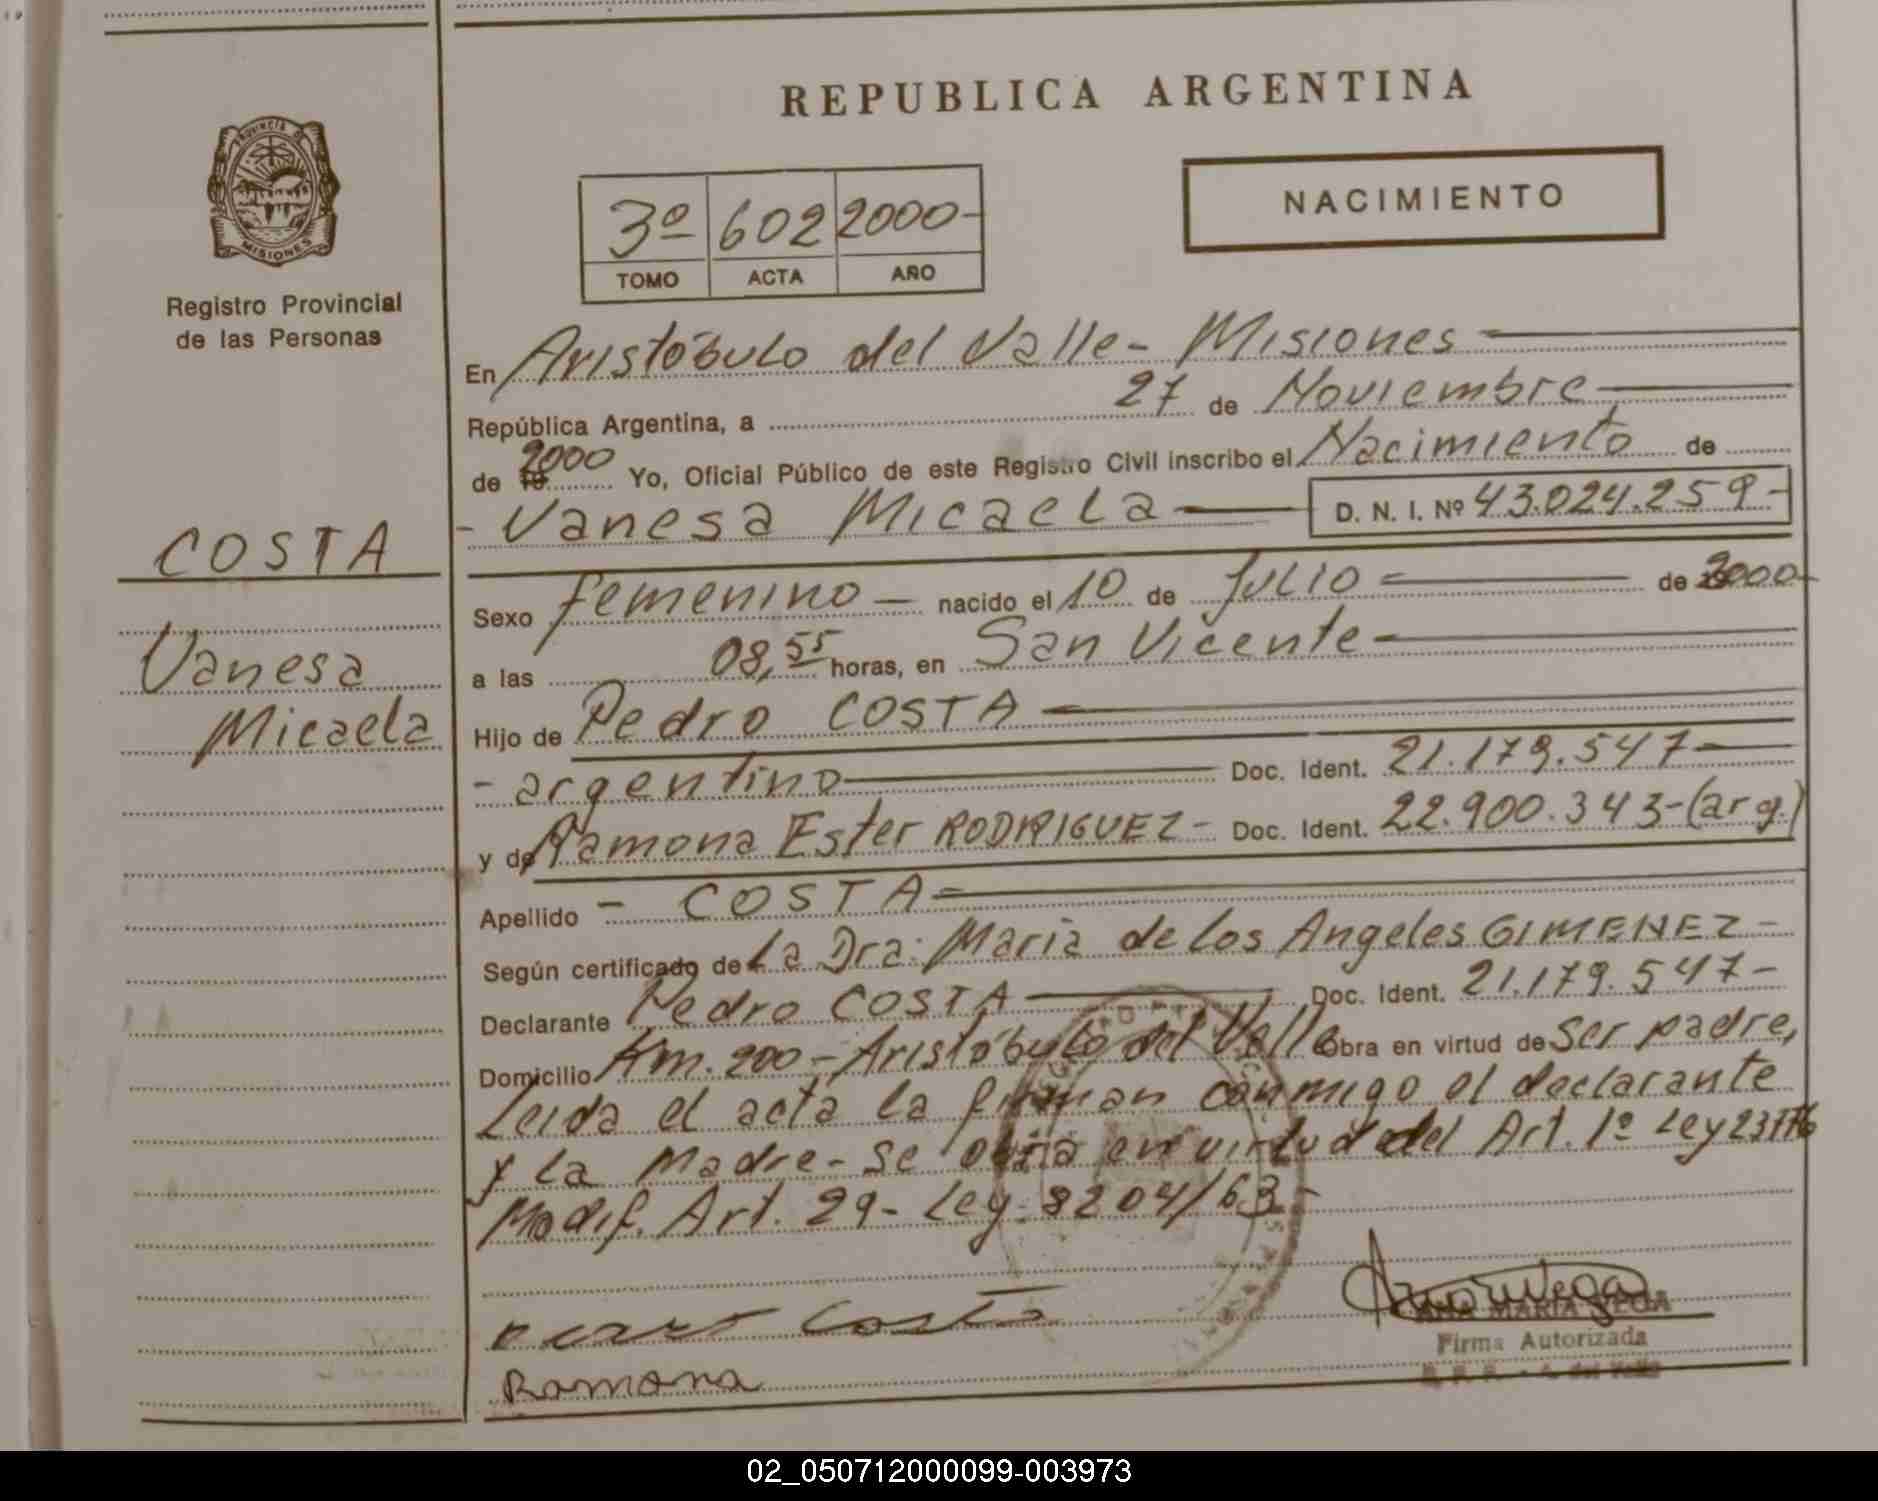 PROVINCIA DE
MISIONES
Registro Provincial
de las Personas
COSTA
Vanesa
Micaela
REPUBLICA ARGENTINA
3º 602 2000-
TOMO ACTA AÑO
NACIMIENTO
En Aristóbulo del Valle - Misiones
República Argentina, a 27 de Noviembre
de 2000 Yo, Oficial Público de este Registro Civil inscribo el Nacimiento de
- Vanesa Micaela D. N. I. Nº 43.024.259-
Sexo femenino - nacido el 10 de Julio de 2000-
a las 08,55 horas, en San Vicente -
Hijo de Pedro COSTA
- argentino Doc. Ident. 21.179.547-
y de Ramona Ester RODRIGUEZ - Doc. Ident. 22.900.343-(arg.)
Apellido - COSTA -
Según certificado de La Dra. Maria de los Angeles GIMENEZ -
Declarante Pedro COSTA Doc. Ident. 21.179.547-
Domicilio Km. 200 - Aristóbulo del Valle Obra en virtud de ser padre,
Leida el acta la firman conmigo el declarante
y La Madre - se obra en virtud del Art. 1º Ley 23776
Modif. Art. 29 - Ley 8204/63 -
Costa
Ramona
ANA MARIA VEGA
Firma Autorizada
02_050712000099-003973